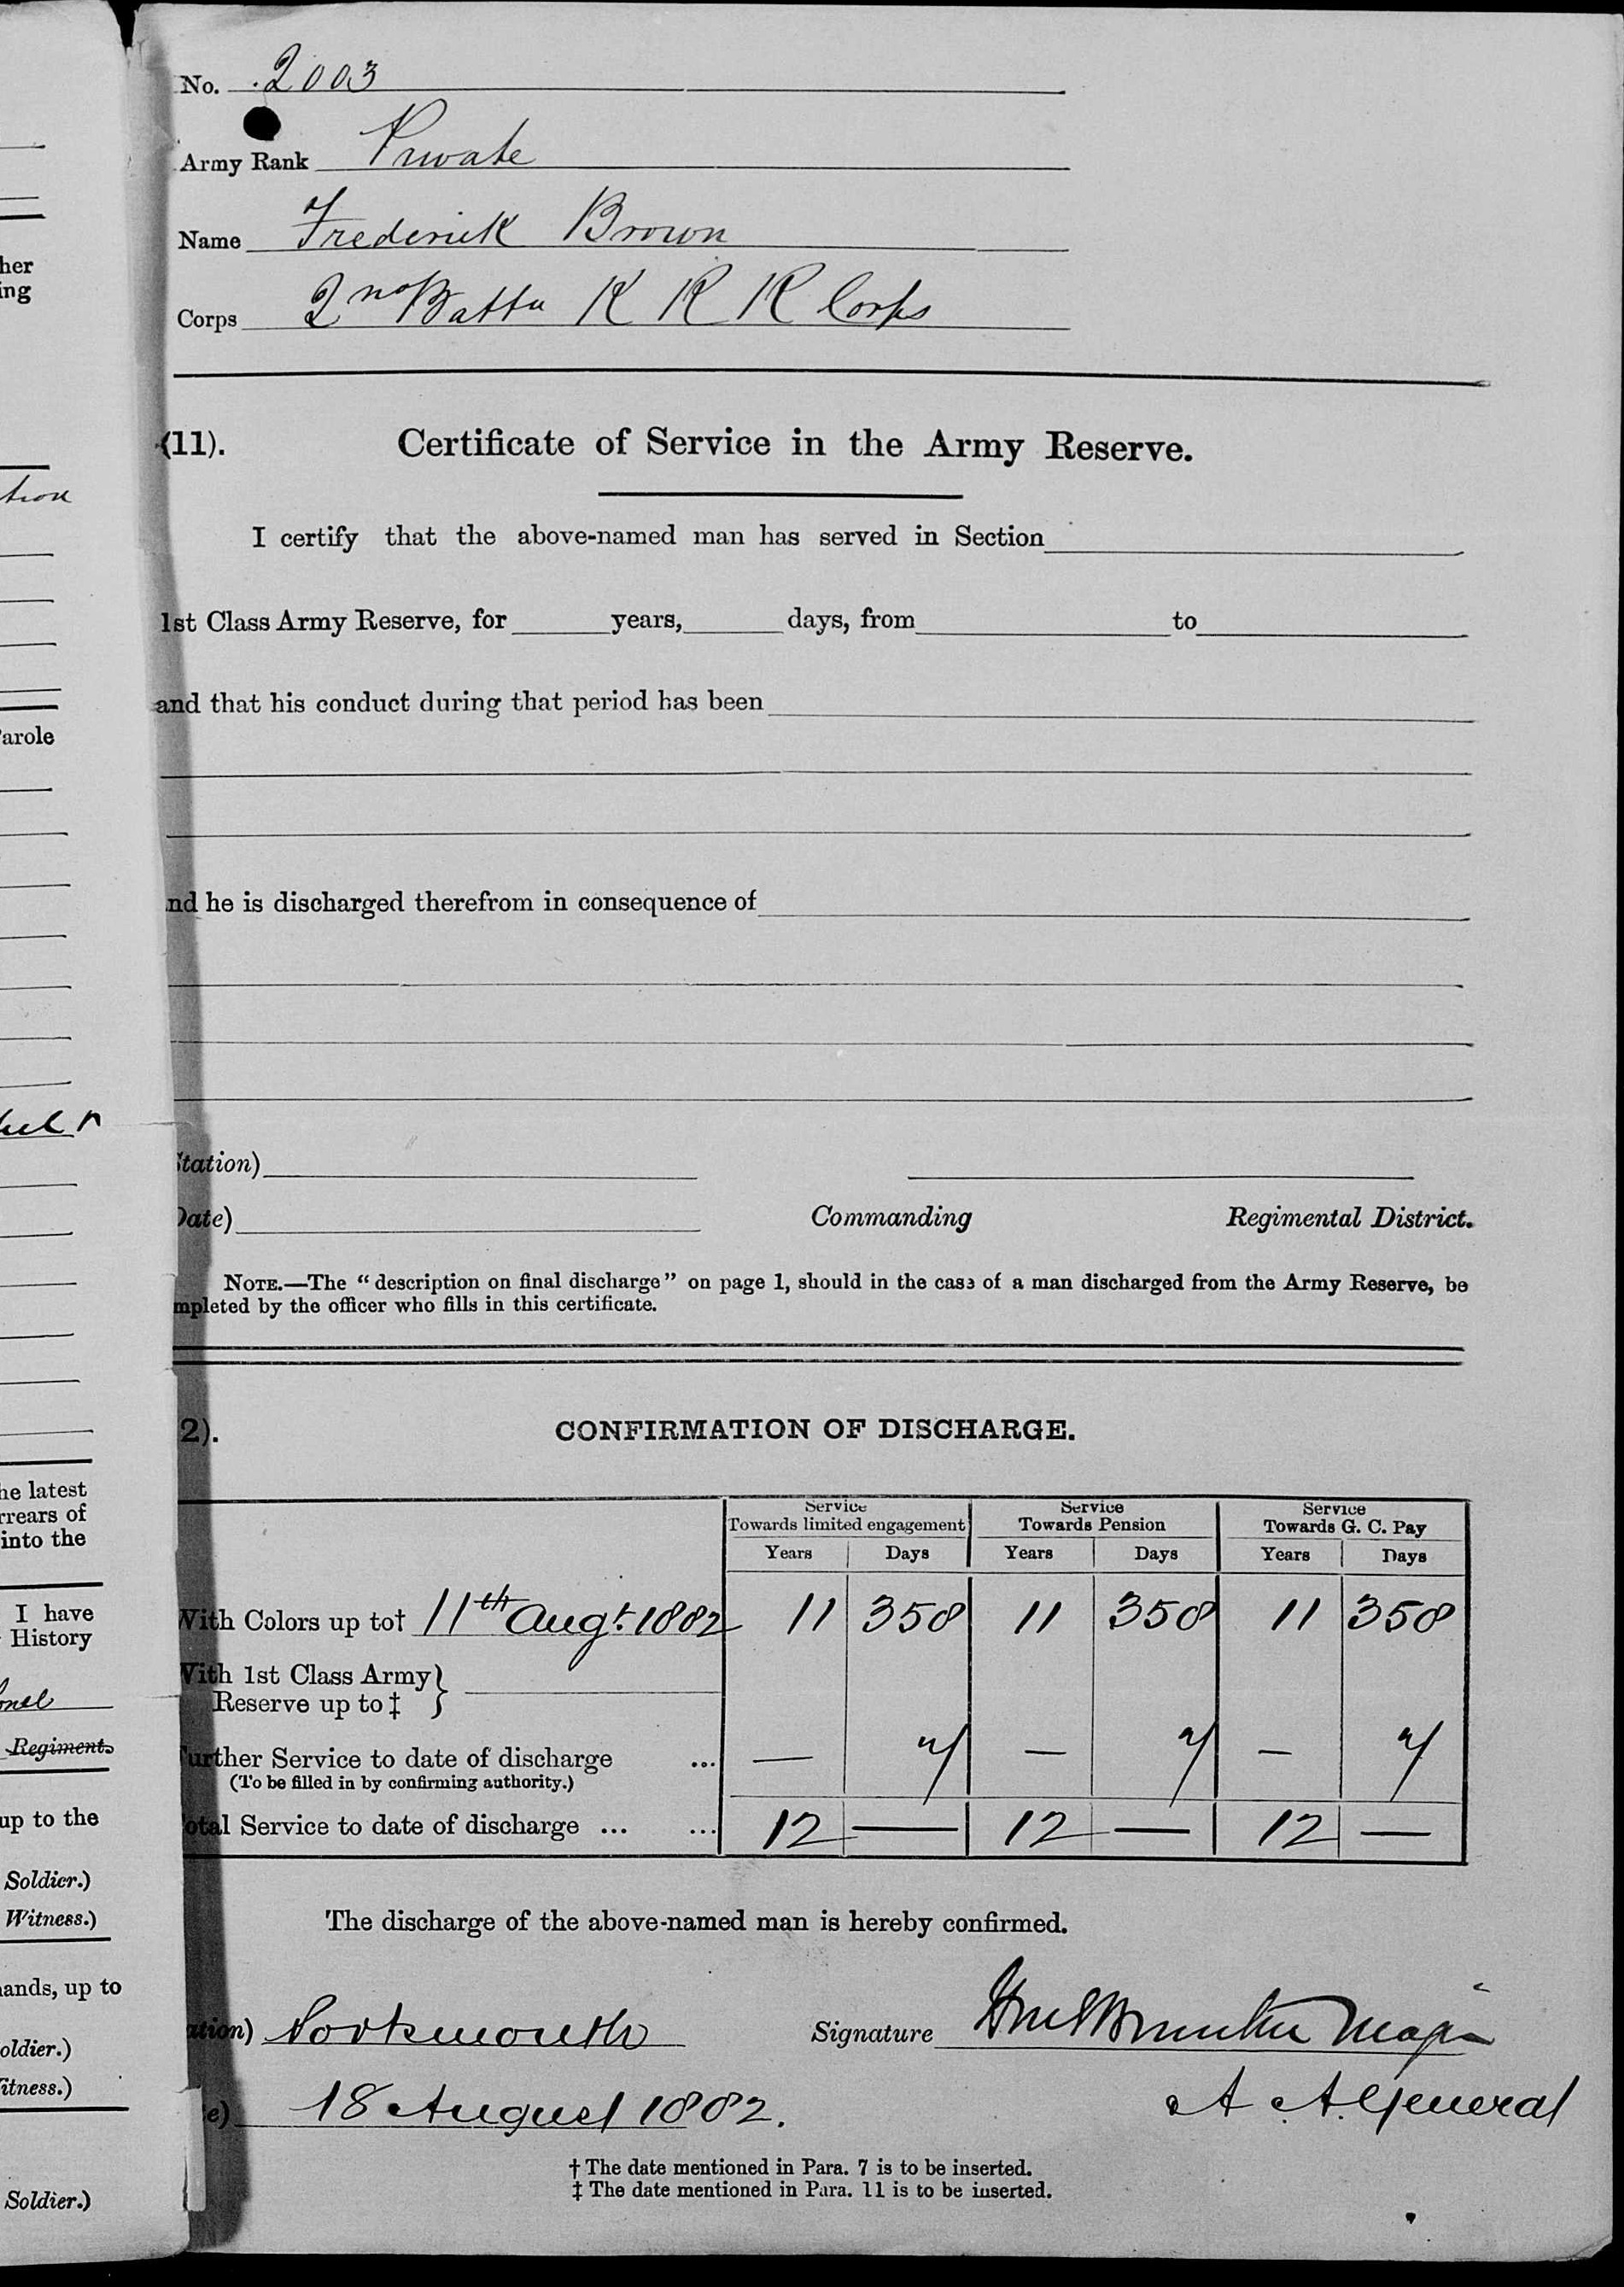 No. 2003
Army Rank Private
Name Frederick Brown
Corps 2nd Battn K R R Corps
(11). Certificate of Service in the Army Reserve.
I certify that the above-named man has served in Section
1st Class Army Reserve, for years, days, from to
and that his conduct during that period has been
nd he is discharged therefrom in consequence of
tation)
Date) Commanding Regimental District.
NOTE.—The “description on final discharge” on page 1, should in the case of a man discharged from the Army Reserve, be
mpleted by the officer who fills in this certificate.
2). CONFIRMATION OF DISCHARGE.
Service Service Service
Towards limited engagement Towards Pension Towards G. C. Pay
Years Days Years Days Years Days
With Colors up to† 11th Augt. 1882 11 358 11 358 11 358
With 1st Class Army }
Reserve up to ‡
Further Service to date of discharge ... — 7 — 7 — 7
(To be filled in by confirming authority.)
otal Service to date of discharge ... ... 12 — 12 — 12 —
The discharge of the above-named man is hereby confirmed.
ation) Portsmouth Signature Major
e) 18 August 1882. A. A. General
† The date mentioned in Para. 7 is to be inserted.
‡ The date mentioned in Para. 11 is to be inserted.
her
ing
tion
arole
he latest
rrears of
into the
I have
History
onel
Regiment.
up to the
Soldier.)
Witness.)
ands, up to
oldier.)
itness.)
Soldier.)